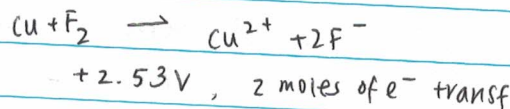 Cu + F₂ → Cu²⁺ + 2F⁻
+2.53V, 2 moles of e⁻ transf